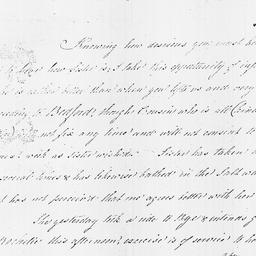 Knowing how desirous you must be
to hear how Sister is, I take this opportunity of inf
she is rather better than when you left us and very
to Bedford, though Cousin who is all
not fix any time and will not consent to
with as Sister wishes. Sister has taken a
several times & has likewise bathed in the Salt wat
but has not perceived that one agrees better with her
She yesterday took a ride to Rye & intends g
Rochelle this afternoon, exercise is of service to h